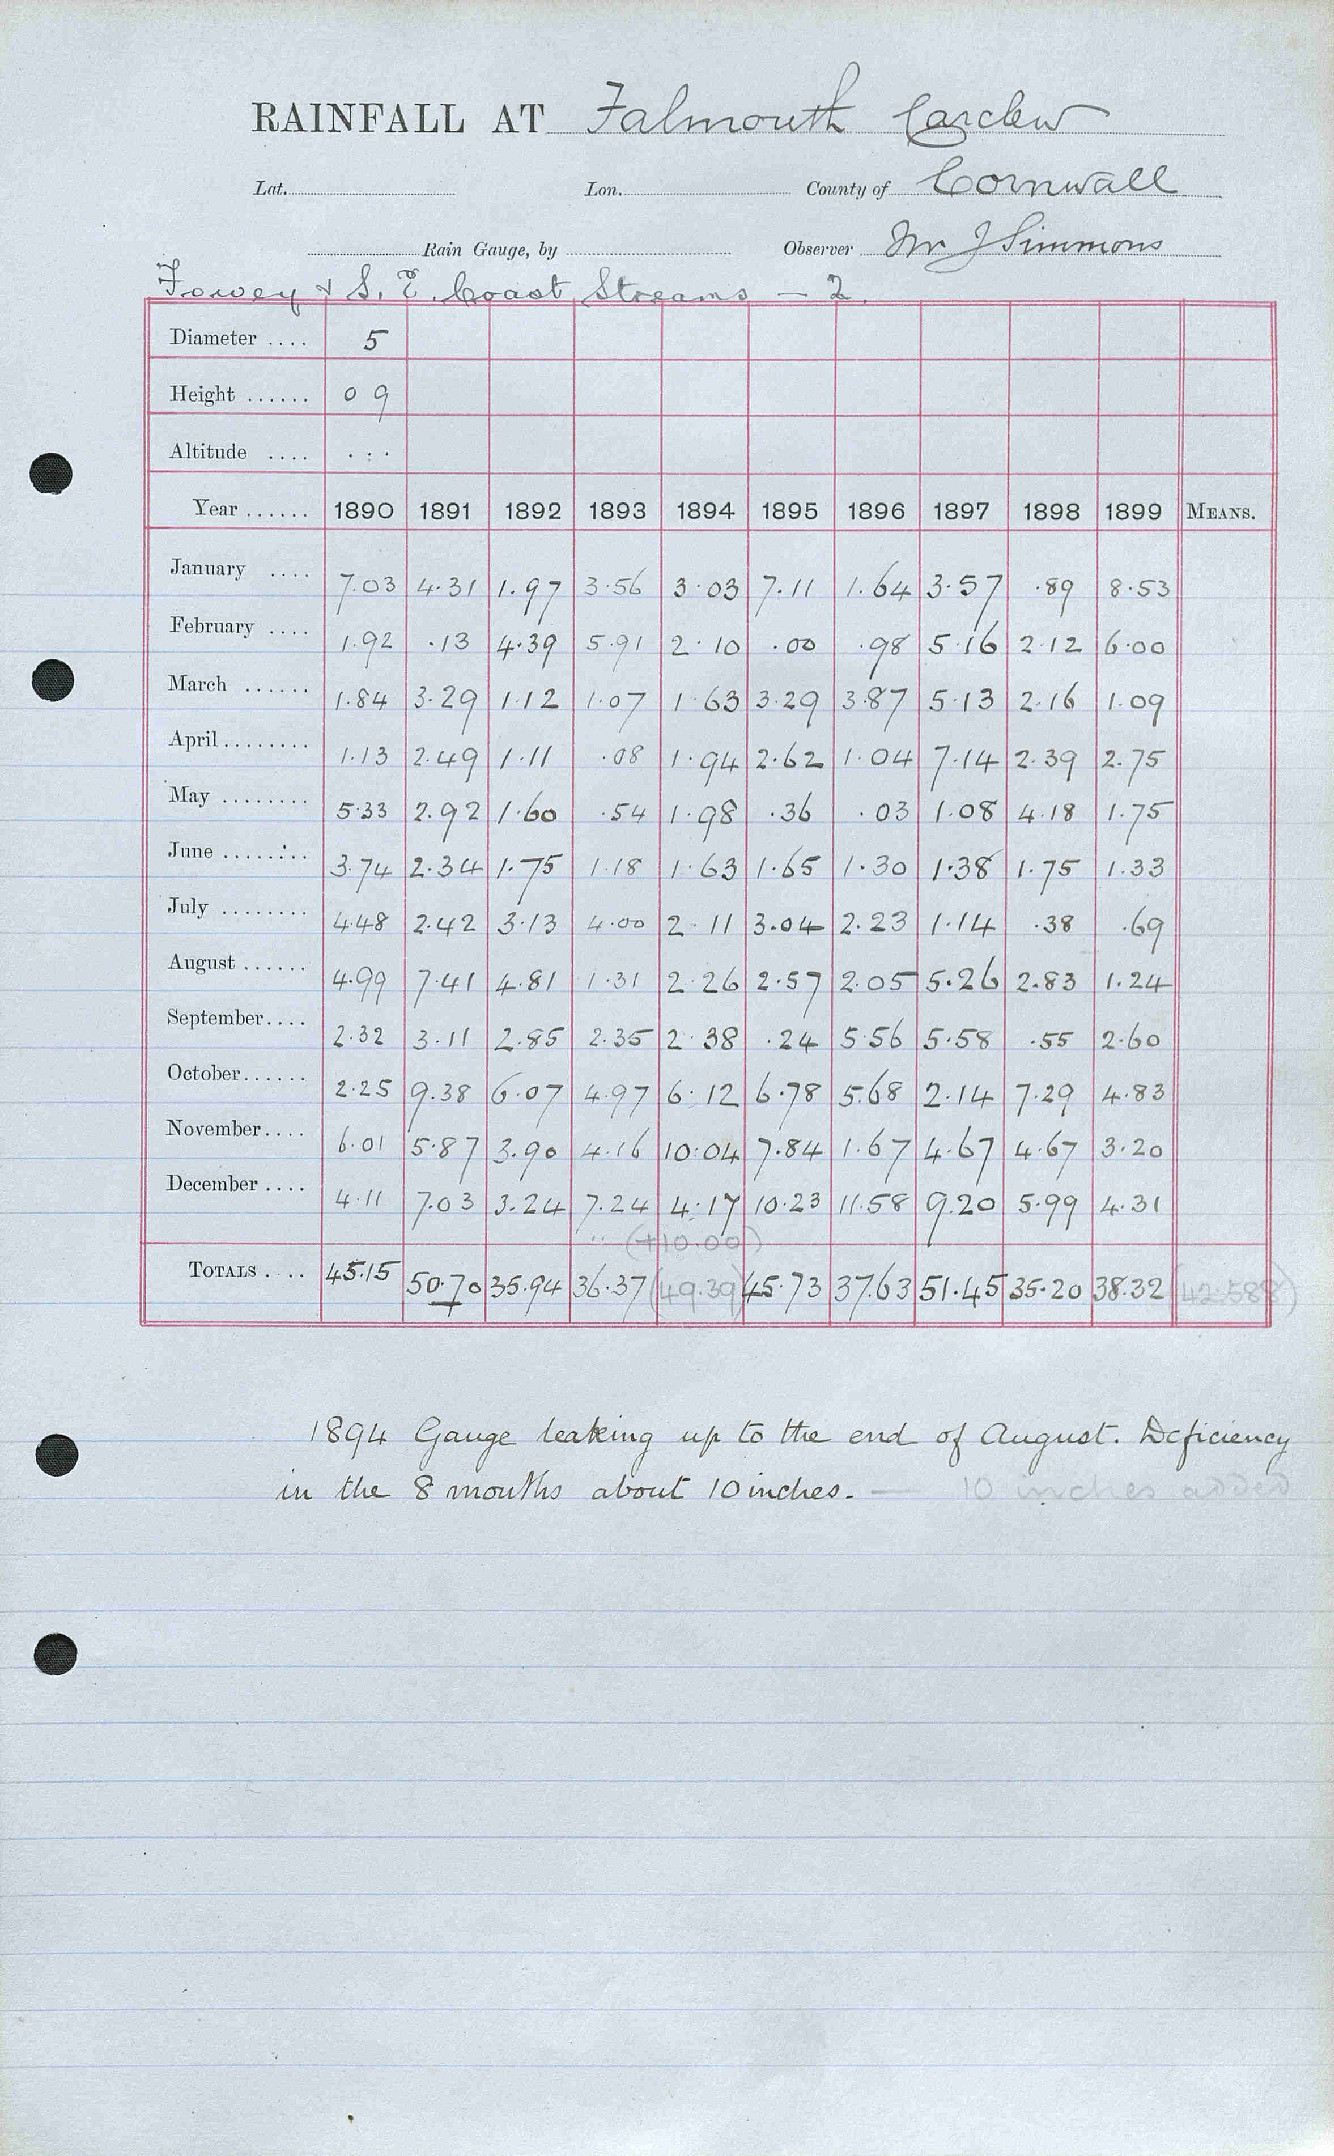 RAINFALL AT Falmouth Carclew
Lat. Lon. County of Cornwall
Rain Gauge, by Observer Mr J Simmons
Fowey & S. E. Coast Streams - 2.
Diameter .... 5
Height ...... 0 9
Altitude .... ...
Year ...... 1890 1891 1892 1893 1894 1895 1896 1897 1898 1899 MEANS.
January .... 7.03 4.31 1.97 3.56 3.03 7.11 1.64 3.57 .89 8.53
February .... 1.92 .13 4.39 5.91 2.10 .00 .98 5.16 2.12 6.00
March ...... 1.84 3.29 1.12 1.07 1.63 3.29 3.87 5.13 2.16 1.09
April ........ 1.13 2.49 1.11 .08 1.94 2.62 1.04 7.14 2.39 2.75
May ........ 5.33 2.92 1.60 .54 1.98 .36 .03 1.08 4.18 1.75
June ........ 3.74 2.34 1.75 1.18 1.63 1.65 1.30 1.38 1.75 1.33
July ........ 4.48 2.42 3.13 4.00 2.11 3.04 2.23 1.14 .38 .69
August ...... 4.99 7.41 4.81 1.31 2.26 2.57 2.05 5.26 2.83 1.24
September .... 2.32 3.11 2.85 2.35 2.38 .24 5.56 5.58 .55 2.60
October ...... 2.25 9.38 6.07 4.97 6.12 6.78 5.68 2.14 7.29 4.83
November .... 6.01 5.87 3.90 4.16 10.04 7.84 1.67 4.67 4.67 3.20
December .... 4.11 7.03 3.24 7.24 4.17 10.23 11.58 9.20 5.99 4.31
(+10.00)
TOTALS .... 45.15 50.70 35.94 36.37 (49.39) 45.73 37.63 51.45 35.20 38.32 (42.588)
1894 Gauge leaking up to the end of August. Deficiency
in the 8 months about 10 inches. — 10 inches added